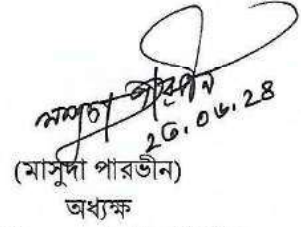 মাসুদা পারভীন
২৫.০৬.২৪
(মাসুদা পারভীন)
অধ্যক্ষ